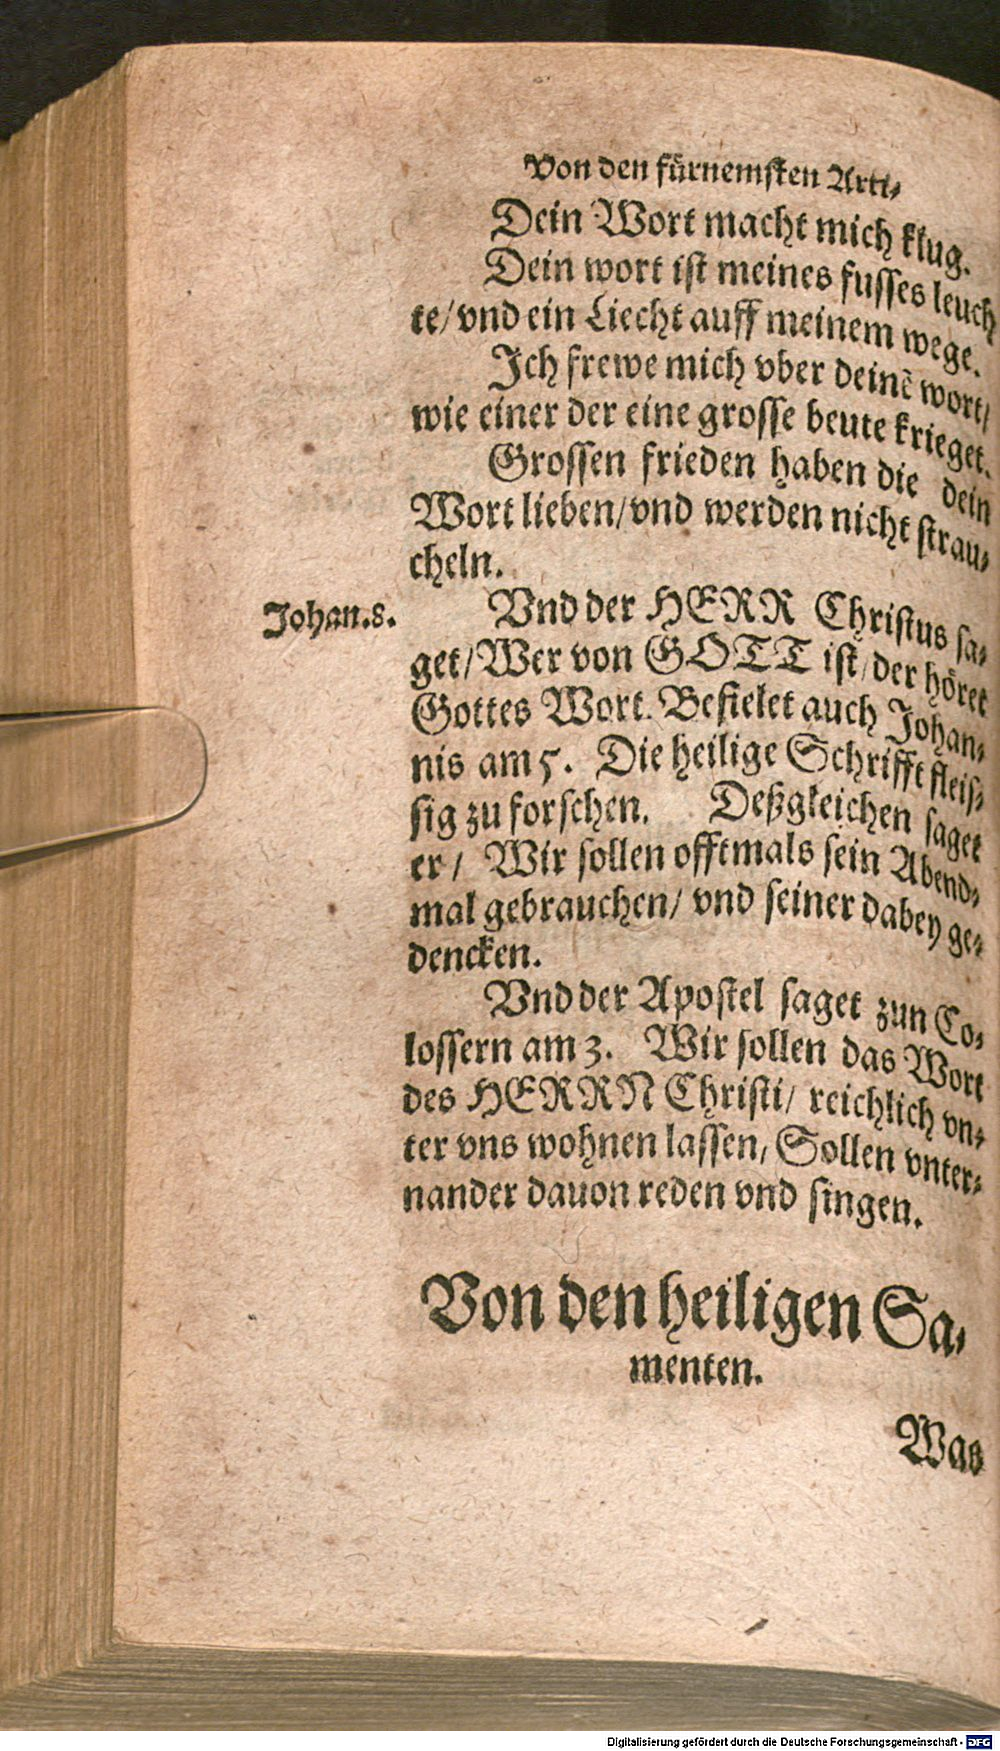 Von den fürnemsten Arti-
Dein Wort macht mich klug.
Dein wort ist meines fusses leuch
te/ vnd ein Liecht auff meinem wege.
Ich frewe mich vber deinẽ wort/
wie einer der eine grosse beute krieget.
Grossen frieden haben die dein
Wort lieben/ vnd werden nicht strau-
cheln.
Johan.8.
Vnd der HERR Christus sa-
get/ Wer von GOTT ist/ der höret
Gottes Wort. Befielet auch Johan-
nis am 5. Die heilige Schrifft fleis-
sig zu forschen. Deßgleichen saget
er/ Wir sollen offtmals sein Abend-
mal gebrauchen/ vnd seiner dabey ge-
dencken.
Vnd der Apostel saget zun Co-
lossern am 3. Wir sollen das Wort
des HERRN Christi/ reichlich vn-
ter vns wohnen lassen, Sollen vnter-
nander dauon reden vnd singen.
Von den heiligen Sa-
menten.
Was
Digitalisierung gefördert durch die Deutsche Forschungsgemeinschaft - DFG